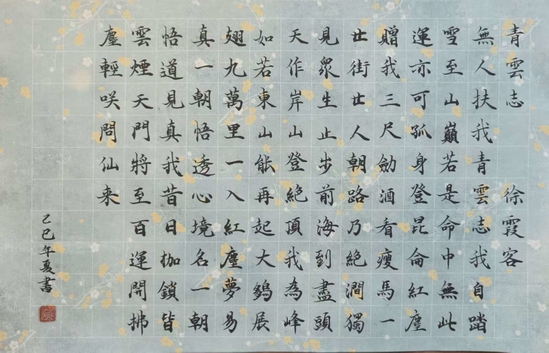 青雲志 徐霞客
無人扶我青雲志我自踏
雪至山巔若是命中無此
運亦可孤身登昆侖紅塵
贈我三尺劍酒看瘦馬一
世街世人朝路乃絕澗獨
見眾生止步前海到盡頭
天作岸山登絕頂我為峰
如若東山能再起大鵬展
翅九萬里一入紅塵夢易
真一朝悟透心境名一朝
悟道見真我昔日枷鎖皆
雲煙天門將至百運開拂
塵輕咲問仙来
乙巳年夏書